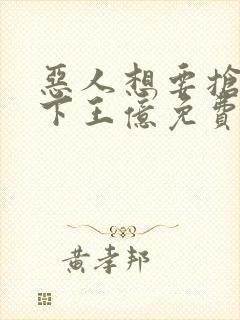 惡人想要搶
下王億免費
黃孝邦